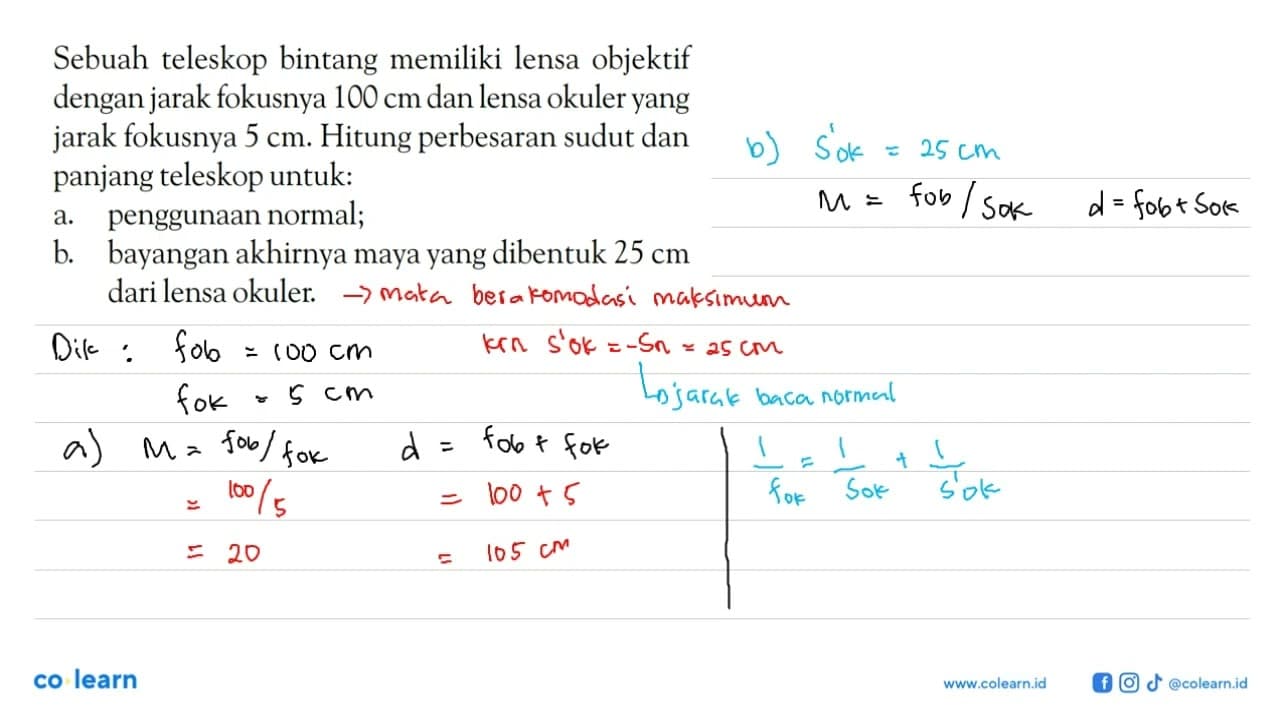 Sebuah teleskop bintang memiliki lensa objektif
dengan jarak fokusnya 100 cm dan lensa okuler yang
jarak fokusnya 5 cm. Hitung perbesaran sudut dan
panjang teleskop untuk:
a. penggunaan normal;
b. bayangan akhirnya maya yang dibentuk 25 cm
dari lensa okuler. → mata berakomodasi maksimum
krn s'ok = -Sn = 25 cm
↳ jarak baca normal
Dik : fob = 100 cm
fok = 5 cm
a) M = fob/fok d = fob + fok
= 100/5 = 100 + 5
= 20 = 105 cm
b) s'ok = 25 cm
M = fob/Sok d = fob + Sok
1/fok = 1/Sok + 1/s'ok
co learn
www.colearn.id @colearn.id